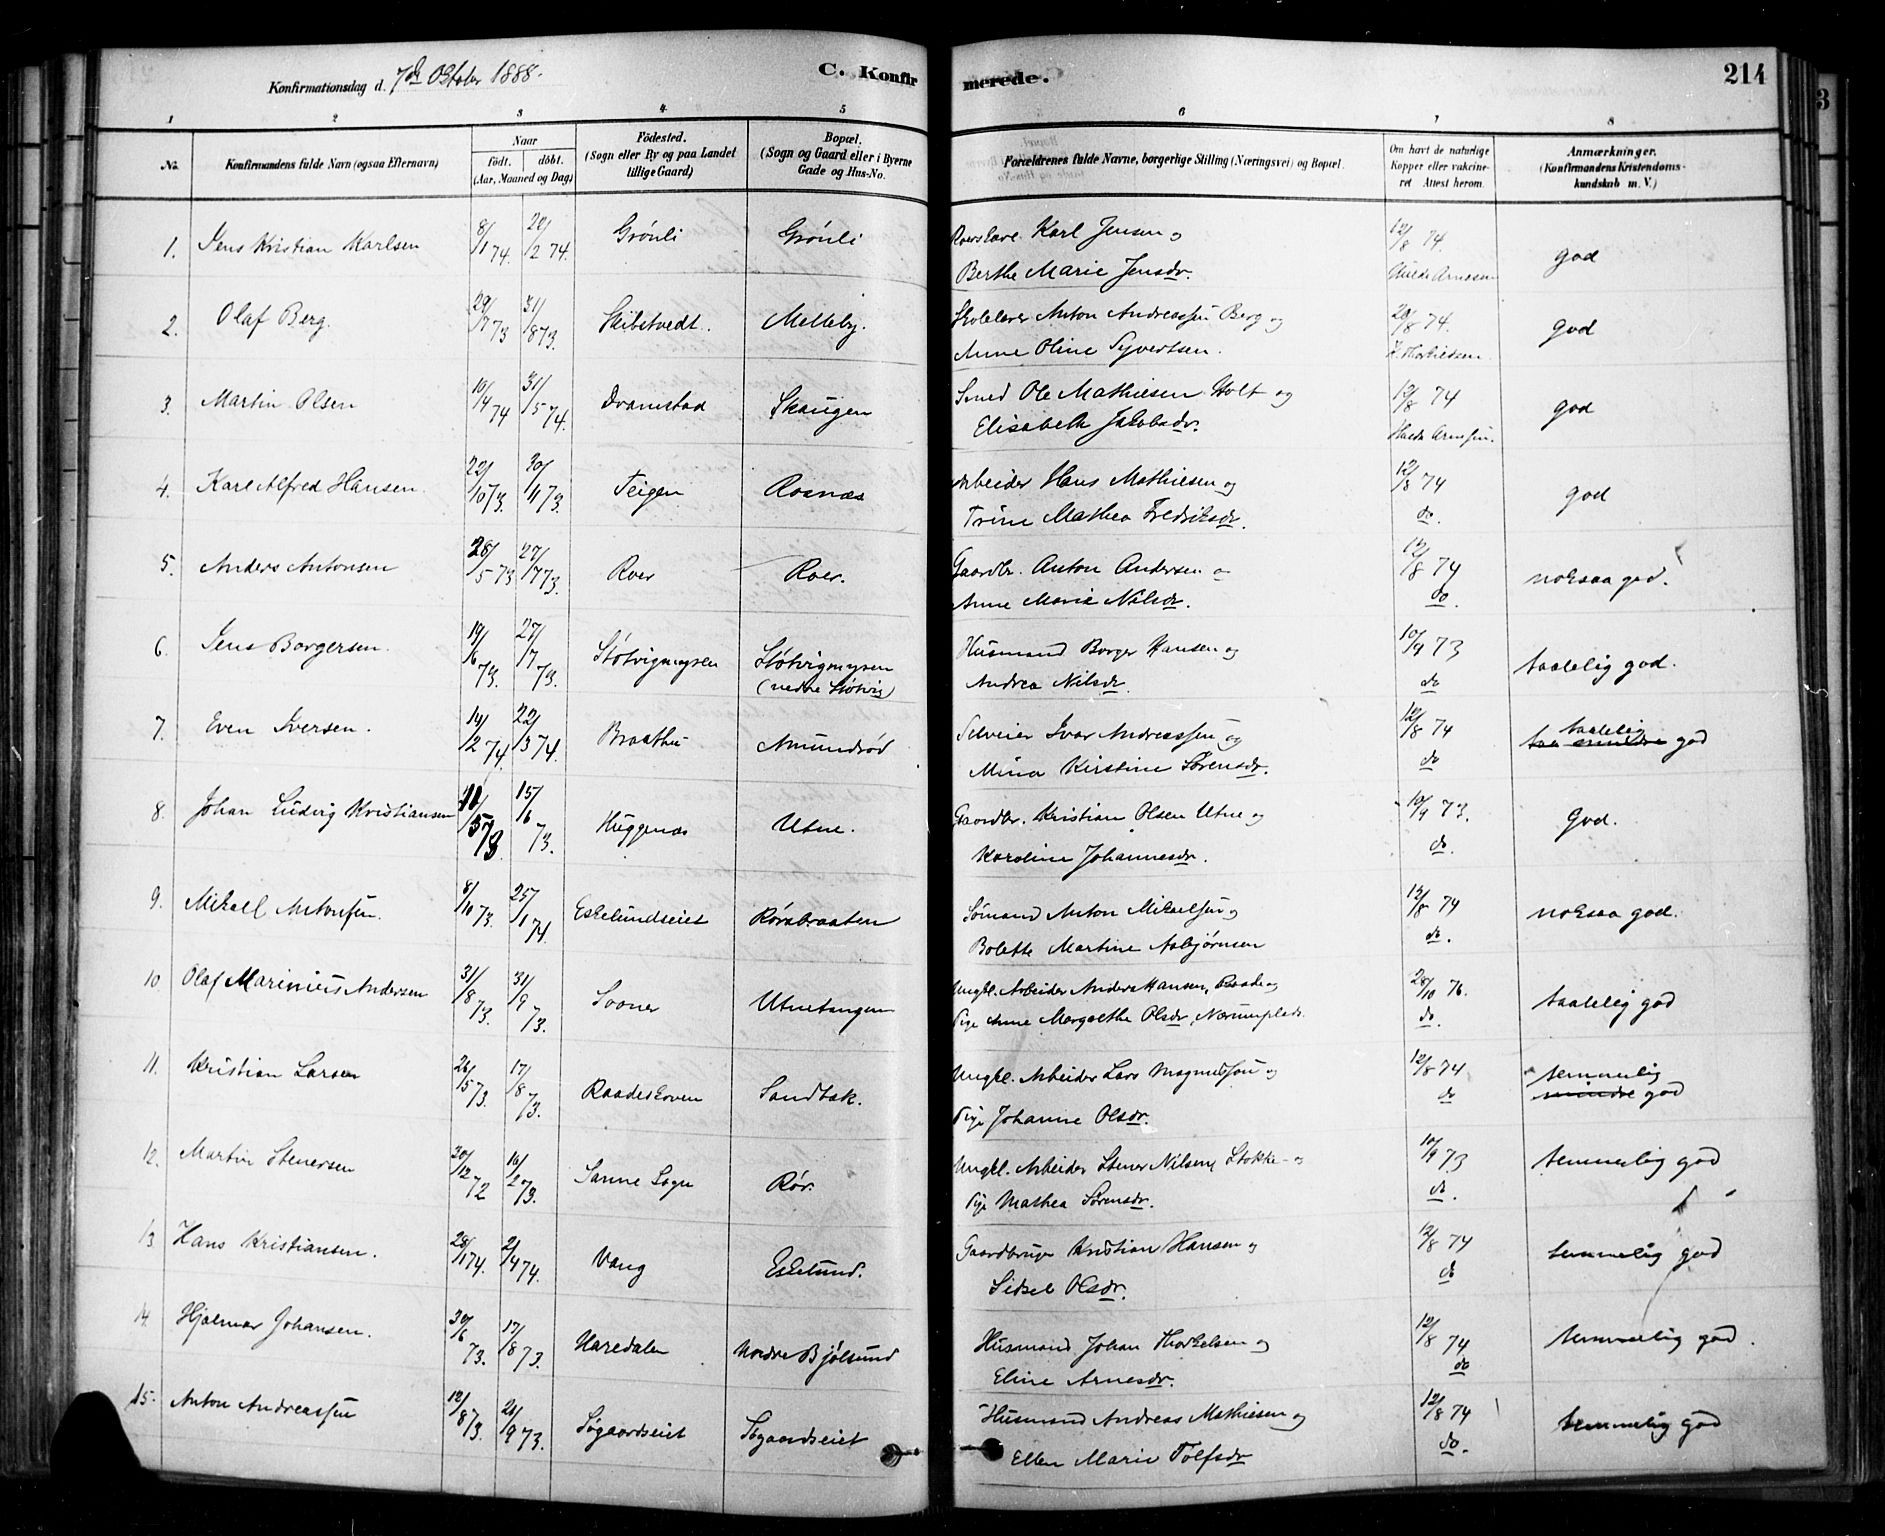 Konfirmationsdag d. 7de Oktober 1888.
C. Konfirmerede.
214
1 2 3 4 5 6 7 8
No. Konfirmandens fulde Navn (ogsaa Efternavn) Naar födt. döbt. (Aar, Maaned og Dag) Födested. (Sogn eller By og paa Landet tillige Gaard) Bopæl. (Sogn og Gaard eller i Byerne Gade og Hus-No. Forældrenes fulde Navne, borgerlige Stilling (Næringsvei) og Bopæl. Om havt de naturlige Kopper eller vakcineret Attest herom. Anmærkninger. (Konfirmandens Kristendomskundskab m. V.)
1. Jens Kristian Karlsen 8/1 74. 20/2 74. Grönli Grönli Karl Jensen og 12/8 74. god
Berthe Marie Jensdr.
2. Olaf Berg. 29/7 73 31/8 73. Skibtvedt. Melleby. Skolelærer Anton Andreassen Berg og 20/8 74. god
Anne Oline Syvertsen.
3. Martin Olsen 10/4 74 31/5 74. Dramstad Skaugen Smed Ole Mathiesen Holt og 12/8 74 god
Elisabeth Jakobsdr.
4. Karl Alfred Hansen. 22/10 73. 30/11 73. Teigen Rosnæs Arbeider Hans Mathiesen og 12/8 74 god
Trine Mathea Fredriksdr. do.
5. Anders Antonsen 28/5 73 27/7 73. Roer Roer. Gaardbr. Anton Andersen o 12/8 74 noksaa god.
Anne Marie Nilsdr. do.
6. Jens Borgersen. 19/6 73. 27/7 73. Støtvigmysen Støtvigmysen Husmand Borger Hansen og 10/9 73 taalelig god.
(nedre Støtvig) Andrea Nilsdr. do
7. Even Iversen. 14/2 74. 22/3 74. Braathu Amundrød Selveier Ivar Andreassen og 12/8 74 taalelig god
Mina Kirstine Sørensdr. do
8. Johan Ludvig Kristiansen 11/5 73 15/6 73. Huggenæs Utne. Gaardbr. Kristian Olsen Utne og 10/9 73. God.
Karoline Johannesdr. do.
9. Mikael Antonsen. 8/10 73. 25/1 74. Eskelundseiet Rørsbraaten Sømand Anton Mikaelsen og 12/8 74 noksaa god.
Bolette Martine Asbjørnsen do.
10. Olaf Marinius Andersen 31/8 73. 31/9 73. Soner Utnetangen Ungkl. Arbeider Anders Hansen, Raade og 28/10 76. taalelig god
Pige Anne Margrethe Olsdr, Nærumplads. do.
11. Kristian Larsen 26/5 73. 17/8 73. Raadeskoven Sandbak. Ungkl. Arbeider Lars Magnussen og 12/8 74 temmelig
Pige Johanne Olsdr. do mindre god
12. Martin Stenersen 30/12 72 16/2 73. Sanne Sogn Rör. Ungkl. Arbeider Stener Nilsen, Stokke o 10/9 73 temmelig god
Pige Mathea Sørensdr. do.
13. Hans Kristiansen. 28/1 74. 2/4 74. Vang Eskelund. Gaardbruger Kristian Hansen og 12/8 74 temmelig god
Sidsel Olsdr. do
14. Hjalmar Johansen. 30/6 73. 17/8 73. Haredalen Nordre Bjølsund Husmand Johan Thorkelsen og 12/8 74 temmelig god.
Eline Arnesdr. do
15. Anton Andreassen 12/8 73. 21/9 73. Søgaardseiet Søgaardseiet Husmand Andreas Mathiesen og 12/8 74 temmelig god
Ellen Marie Tolfsdr do.